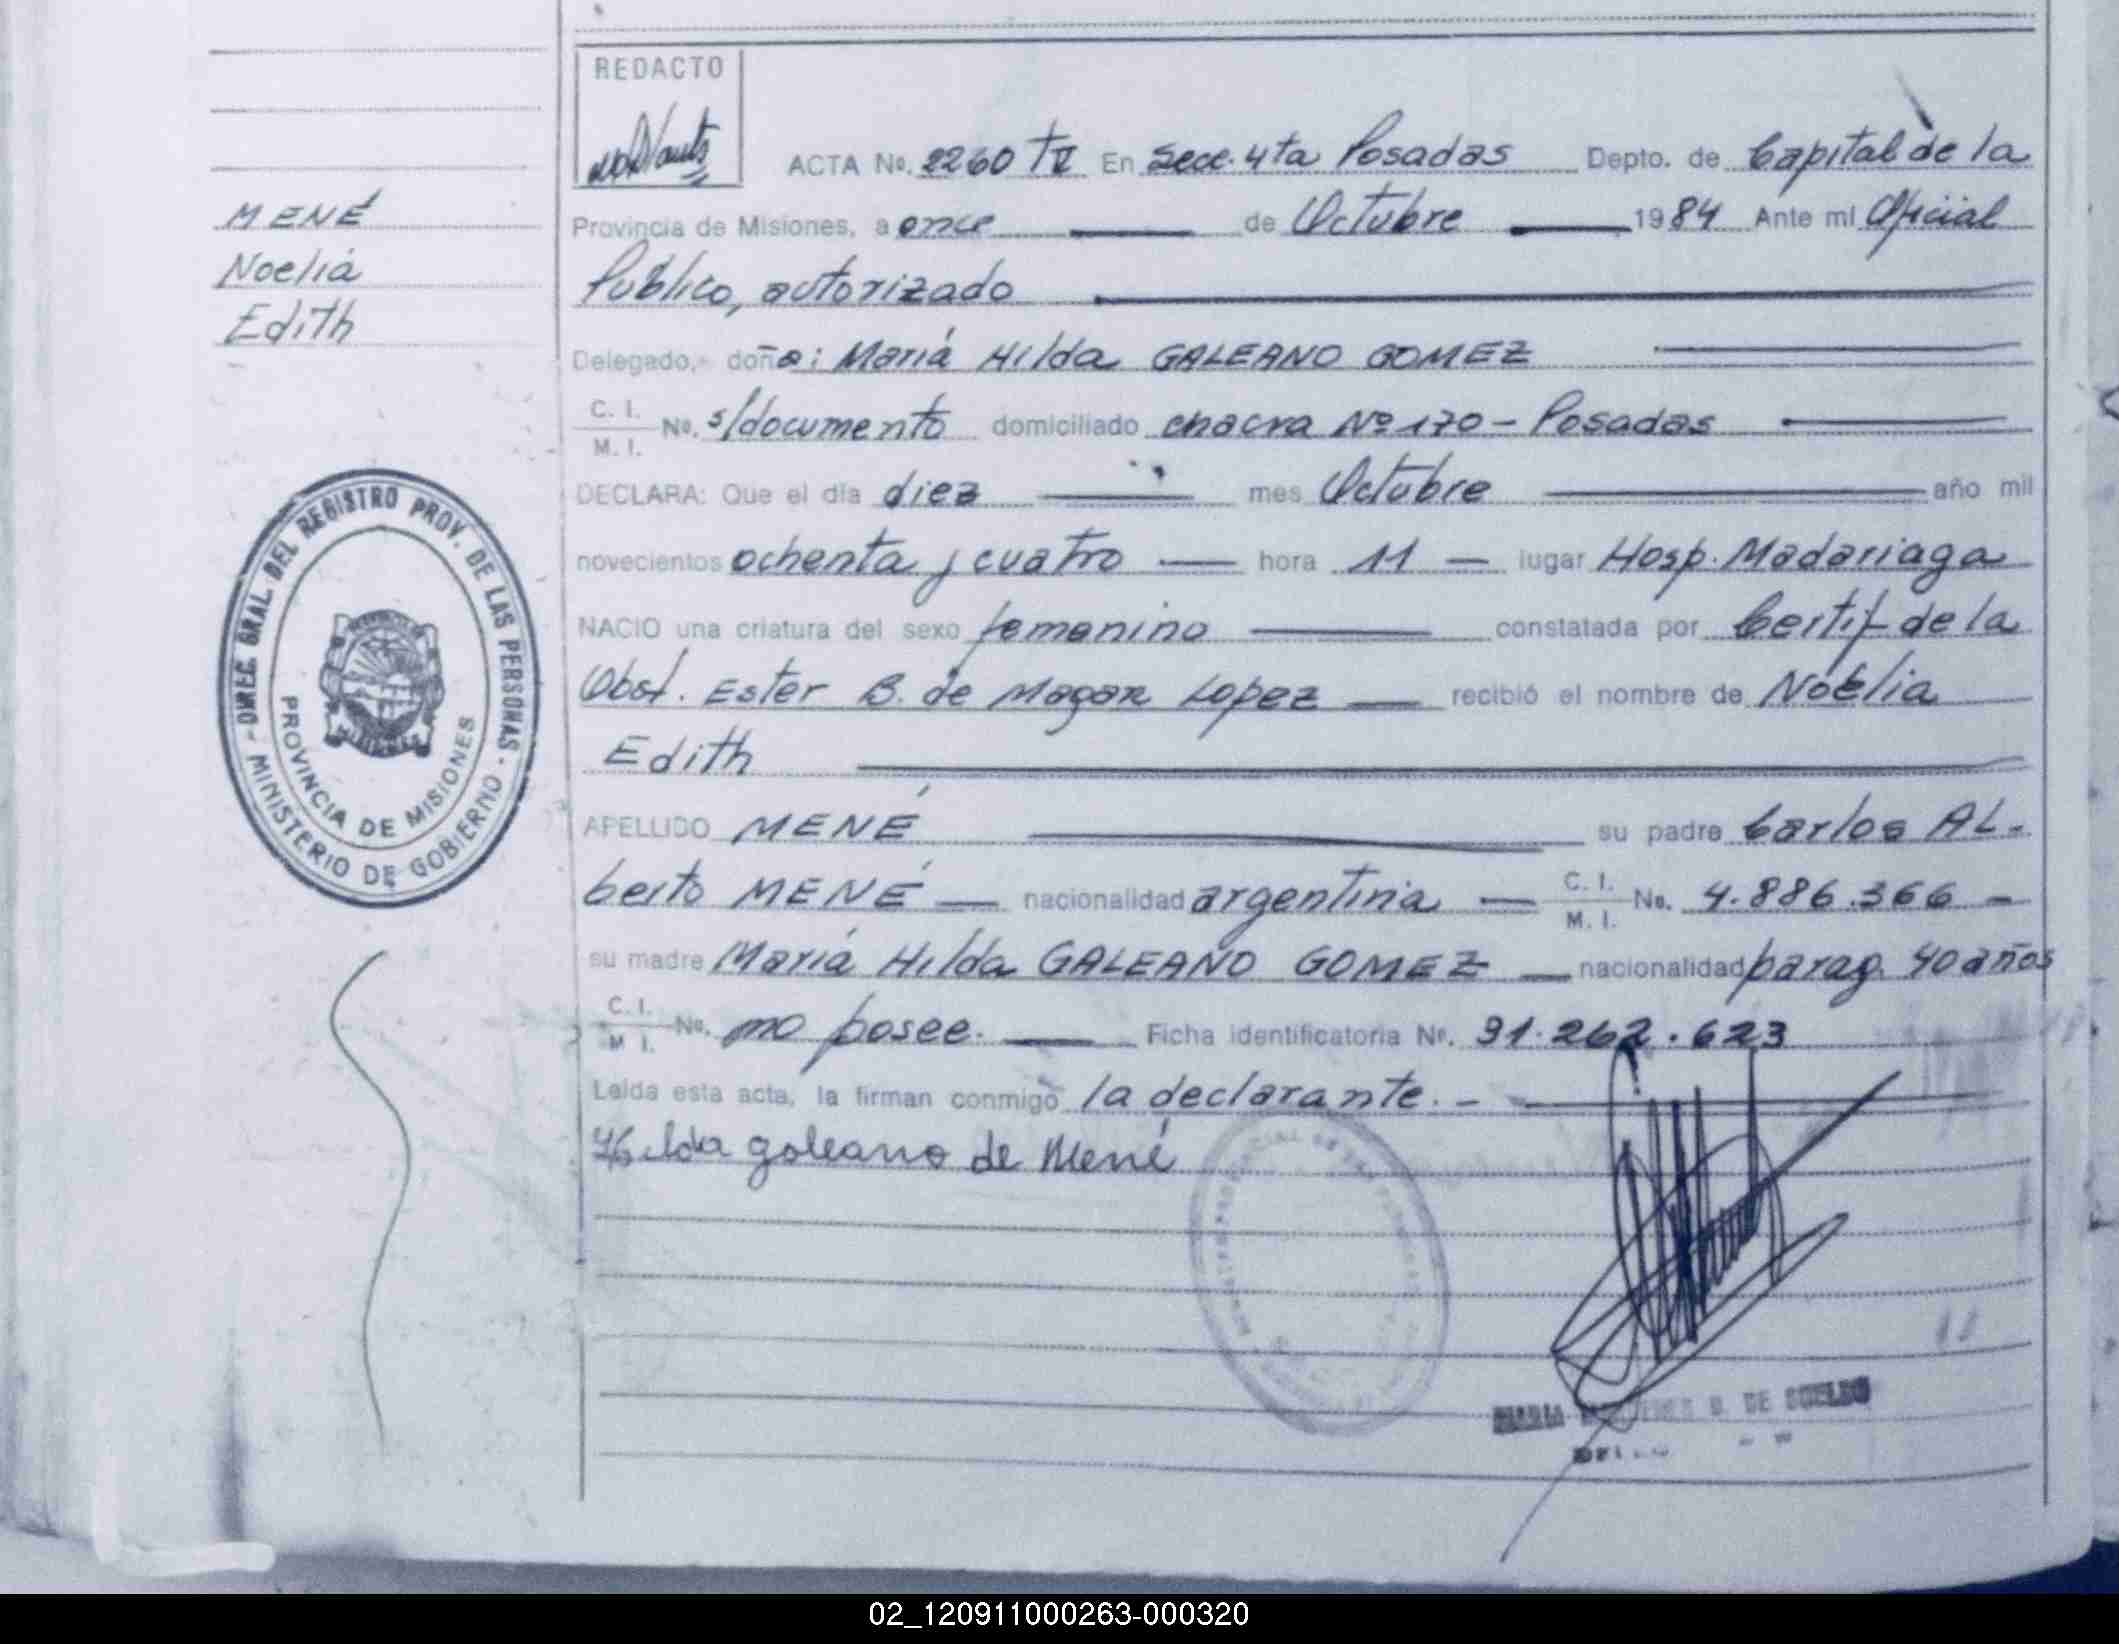 REDACTO
ACTA No. 2260 TV En Secc. 4ta Posadas Depto. de Capital de la
MENÉ
Provincia de Misiones, a once de Octubre 1984 Ante mi Oficial
Noelia
Público, autorizado
Edith
Delegado, doña: María Hilda GALEANO GOMEZ
C. I. M. I. No. s/documento domiciliado chacra Nº 170 - Posadas
DECLARA: Que el día diez mes Octubre año mil
novecientos ochenta y cuatro hora 11 lugar Hosp. Madariaga
NACIO una criatura del sexo femenino constatada por Certif de la
Obst. Ester B. de Lopez recibió el nombre de Noelia
Edith
APELLIDO MENÉ su padre Carlos AL-
berto MENÉ nacionalidad argentina C. I. M. I. No. 4.886.366 -
su madre María Hilda GALEANO GOMEZ nacionalidad parag. 40 años
C. I. M. I. No. no posee. Ficha identificatoria No. 31.262.623
Leida esta acta, la firman conmigo la declarante. -
Hilda galeano de Mené
DIREC. GRAL. DEL REGISTRO PROV. DE LAS PERSONAS
MINISTERIO DE GOBIERNO
PROVINCIA DE MISIONES
MARIA DE
02_120911000263-000320